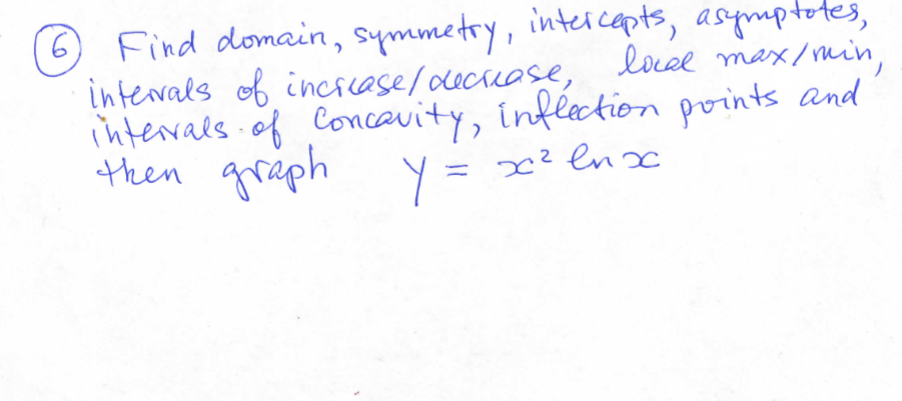 6 Find domain, symmetry, intercepts, asymptotes,
intervals of increase/decrease, local max/min,
intervals of concavity, inflection points and
then graph y = x² ln x